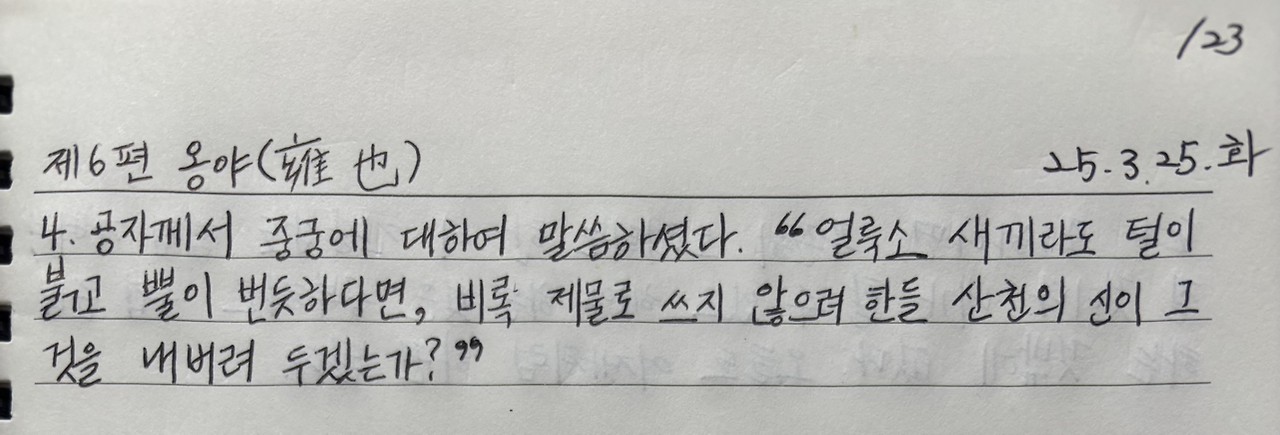 123
제6편 옹야(雍也) 25.3.25.화
4. 공자께서 중궁에 대하여 말씀하셨다. “얼룩소 새끼라도 털이
붉고 뿔이 번듯하다면, 비록 제물로 쓰지 않으려 한들 산천의 신이 그
것을 내버려 두겠는가?”